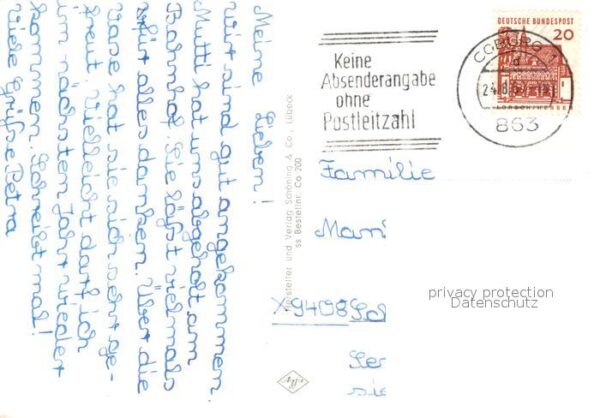 Meine Lieben!
wir sind gut angekommen.
Mutti hat uns abgeholt am
Bahnhof. Sie läßt vielmals
für alles danken. Über die
Vase hat sie sich sehr ge-
freut. Vielleicht darf ich
im nächsten Jahr wieder
kommen. Schreibt mal!
Viele Grüße Petra
Hersteller und Verlag Schöning & Co., Lübeck
ss Bestellnr. Co 200
Keine
Absenderangabe
ohne
Postleitzahl
COBURG 1
d
863
DEUTSCHE BUNDESPOST
20
LORSCH/HESSEN
Familie
X9408
privacy protection
Datenschutz
Agfa